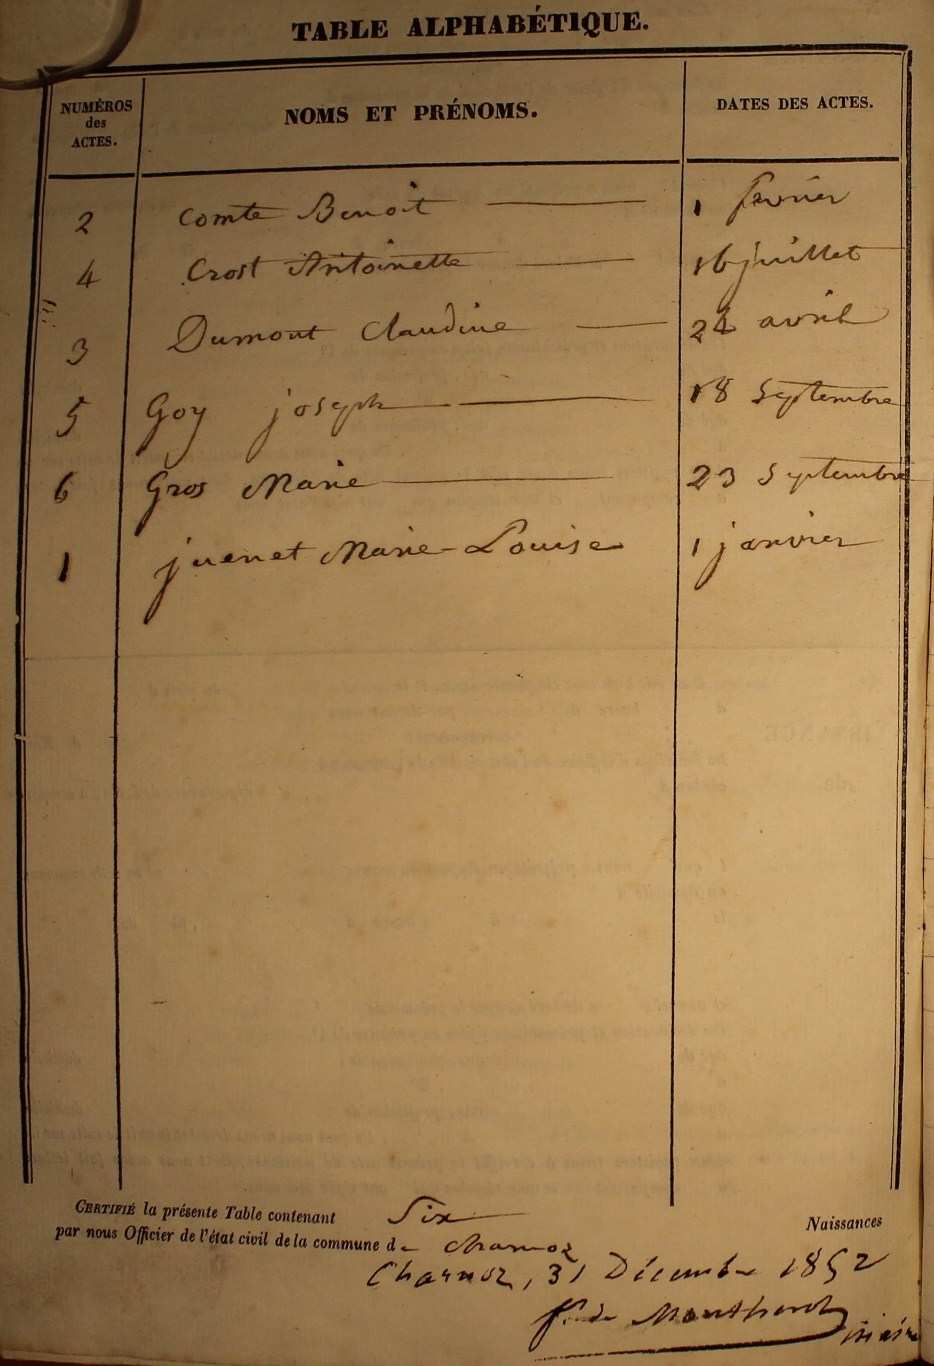 TABLE ALPHABÉTIQUE.
NUMÉROS des ACTES. NOMS ET PRÉNOMS. DATES DES ACTES.
2 Comte Benoit 1 février
4 Crost Antoinette 16 juillet
3 Dumont Claudine 24 avril
5 Goy joseph 18 Septembre
6 Gros Marie 23 Septembre
1 juenet Marie-Louise 1 janvier
CERTIFIÉ la présente Table contenant Six Naissances
par nous Officier de l'état civil de la commune de Charnoz
Charnoz, 31 Décembre 1852